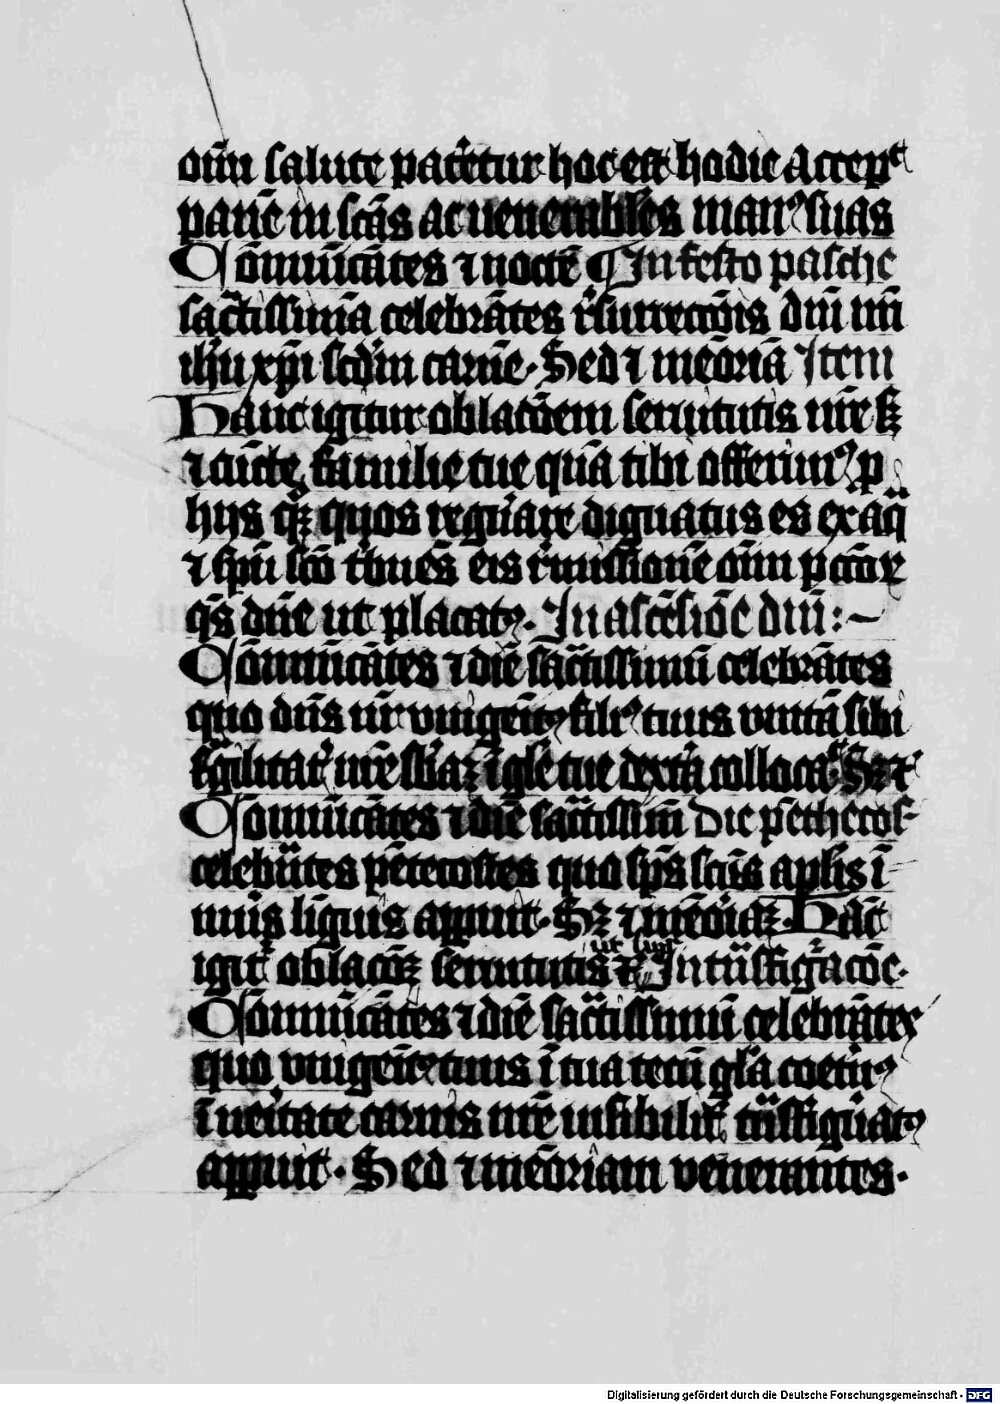 om̄n salute pat̾etur hoc est hodie accepᵗ
panē in sc̄as ac uenerabiles man⁹ suas
Cōmunicātes ⁊ noctē ¶ In festo pasche
sac̄tissimā celebrātes r̾surrectōis dn̄i nr̄i
ih̄u xp̄i scd̄m carnē. Sed ⁊ mēoriā Item
Hanc igitur oblatōem seruitutis nr̄e sꝫ
⁊ cūcte familie tue quā tibi offerim⁹ p
hijs qꝫ quos reḡnare dignatus es ex aq̄
⁊ sp̄u sc̄o tbuēs eis r̾missionē om̄n pctōꝝ
qs̄ dn̄e ut placat⁹. In ascēsiōe dn̄i :~
Cōmunicātes ⁊ diē sac̄tissimū celebrātes
quo dn̄s nr̄ vnigenit⁹ fili⁹ tuus vnitā sibi
fragilitat̾ nr̄e sb̄am ī gl̄e tue dext̾a collocaᵗ. Sꝫ ⁊
Cōmunicātes ⁊ diē sac̄tissim̄ Die pēthecos-
celebrātes pētecostes quo sp̄s sc̄us apl̄is ī
nūis līguis apparuit. Sꝫ ⁊ mēoriaꝫ. Hāc
igit̾ oblacōꝫ seruitutis ut suprᵃ In trāsfigᵃcōe.
Cōmunicātes ⁊ diē sac̄tissimū celebrātes
quo vnigenit⁹ tuus ī tua tecū gl̄a coet̾n⁹
ī ueritate carnis nr̄e uisibilit̾ trāsfigurat⁹
apparuit. Sed ⁊ mēoriam venerantes.
Digitalisierung gefördert durch die Deutsche Forschungsgemeinschaft - DFG